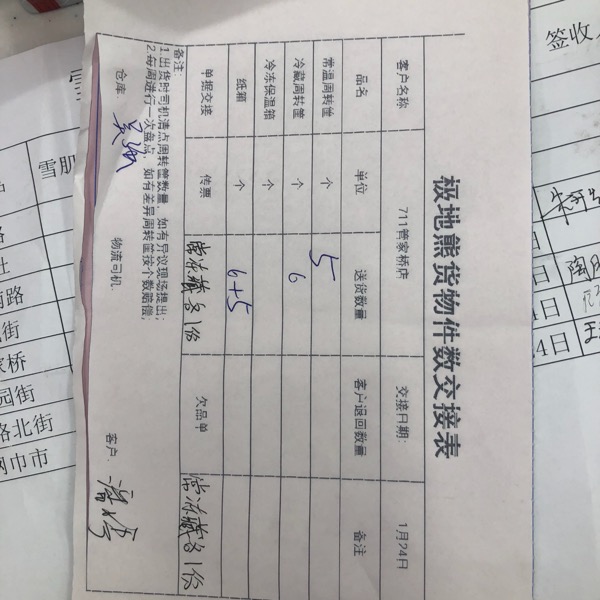 极地熊货物件数交接表
客户名称 711管家桥店 交接日期: 1月24日
品名 单位 送货数量 客户退回数量 备注
常温周转筐 个 5
冷藏周转筐 个 6
冷冻保温箱 个
纸箱 个 6+5
单据交接 传票 常冻藏各1份 欠品单 常冻藏各1份
备注:
1.出货时司机清点周转筐数量,如有异议现场提出;
2.每周进行一次盘点,如有差异周转筐按个数赔偿;
仓库: 物流司机: 客户:
签收人
4日
雪肌
路
社
南路
街
家桥
园街
路北街
网巾市